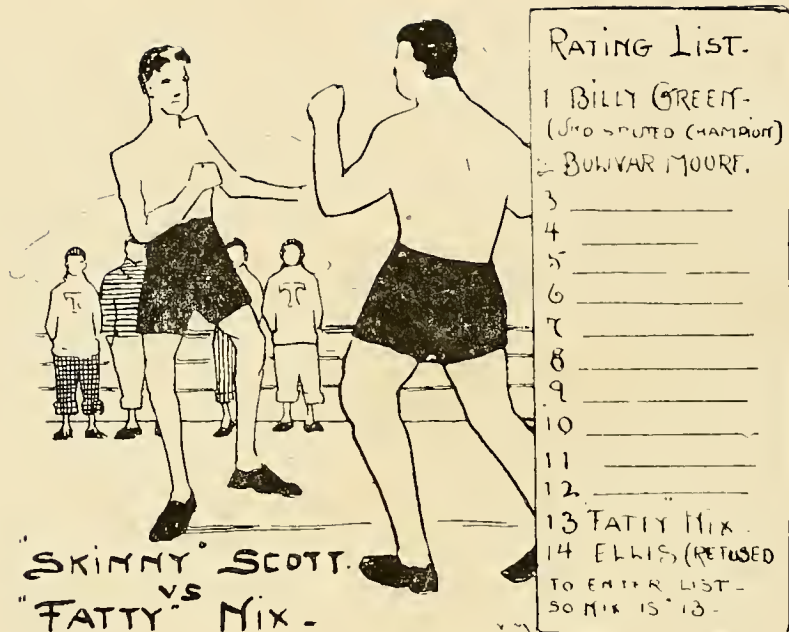 RATING LIST-
1 BILLY GREEN-
(UNDISPUTED CHAMPION)
2 BOLIVAR MOORE.
3
4
5
6
7
8
9
10
11
12
13 "FATTY" NIX.
14 ELLIS (REFUSED
TO ENTER LIST-
SO NIX IS 13-
T
T
"SKINNY" SCOTT.
VS
"FATTY" NIX-